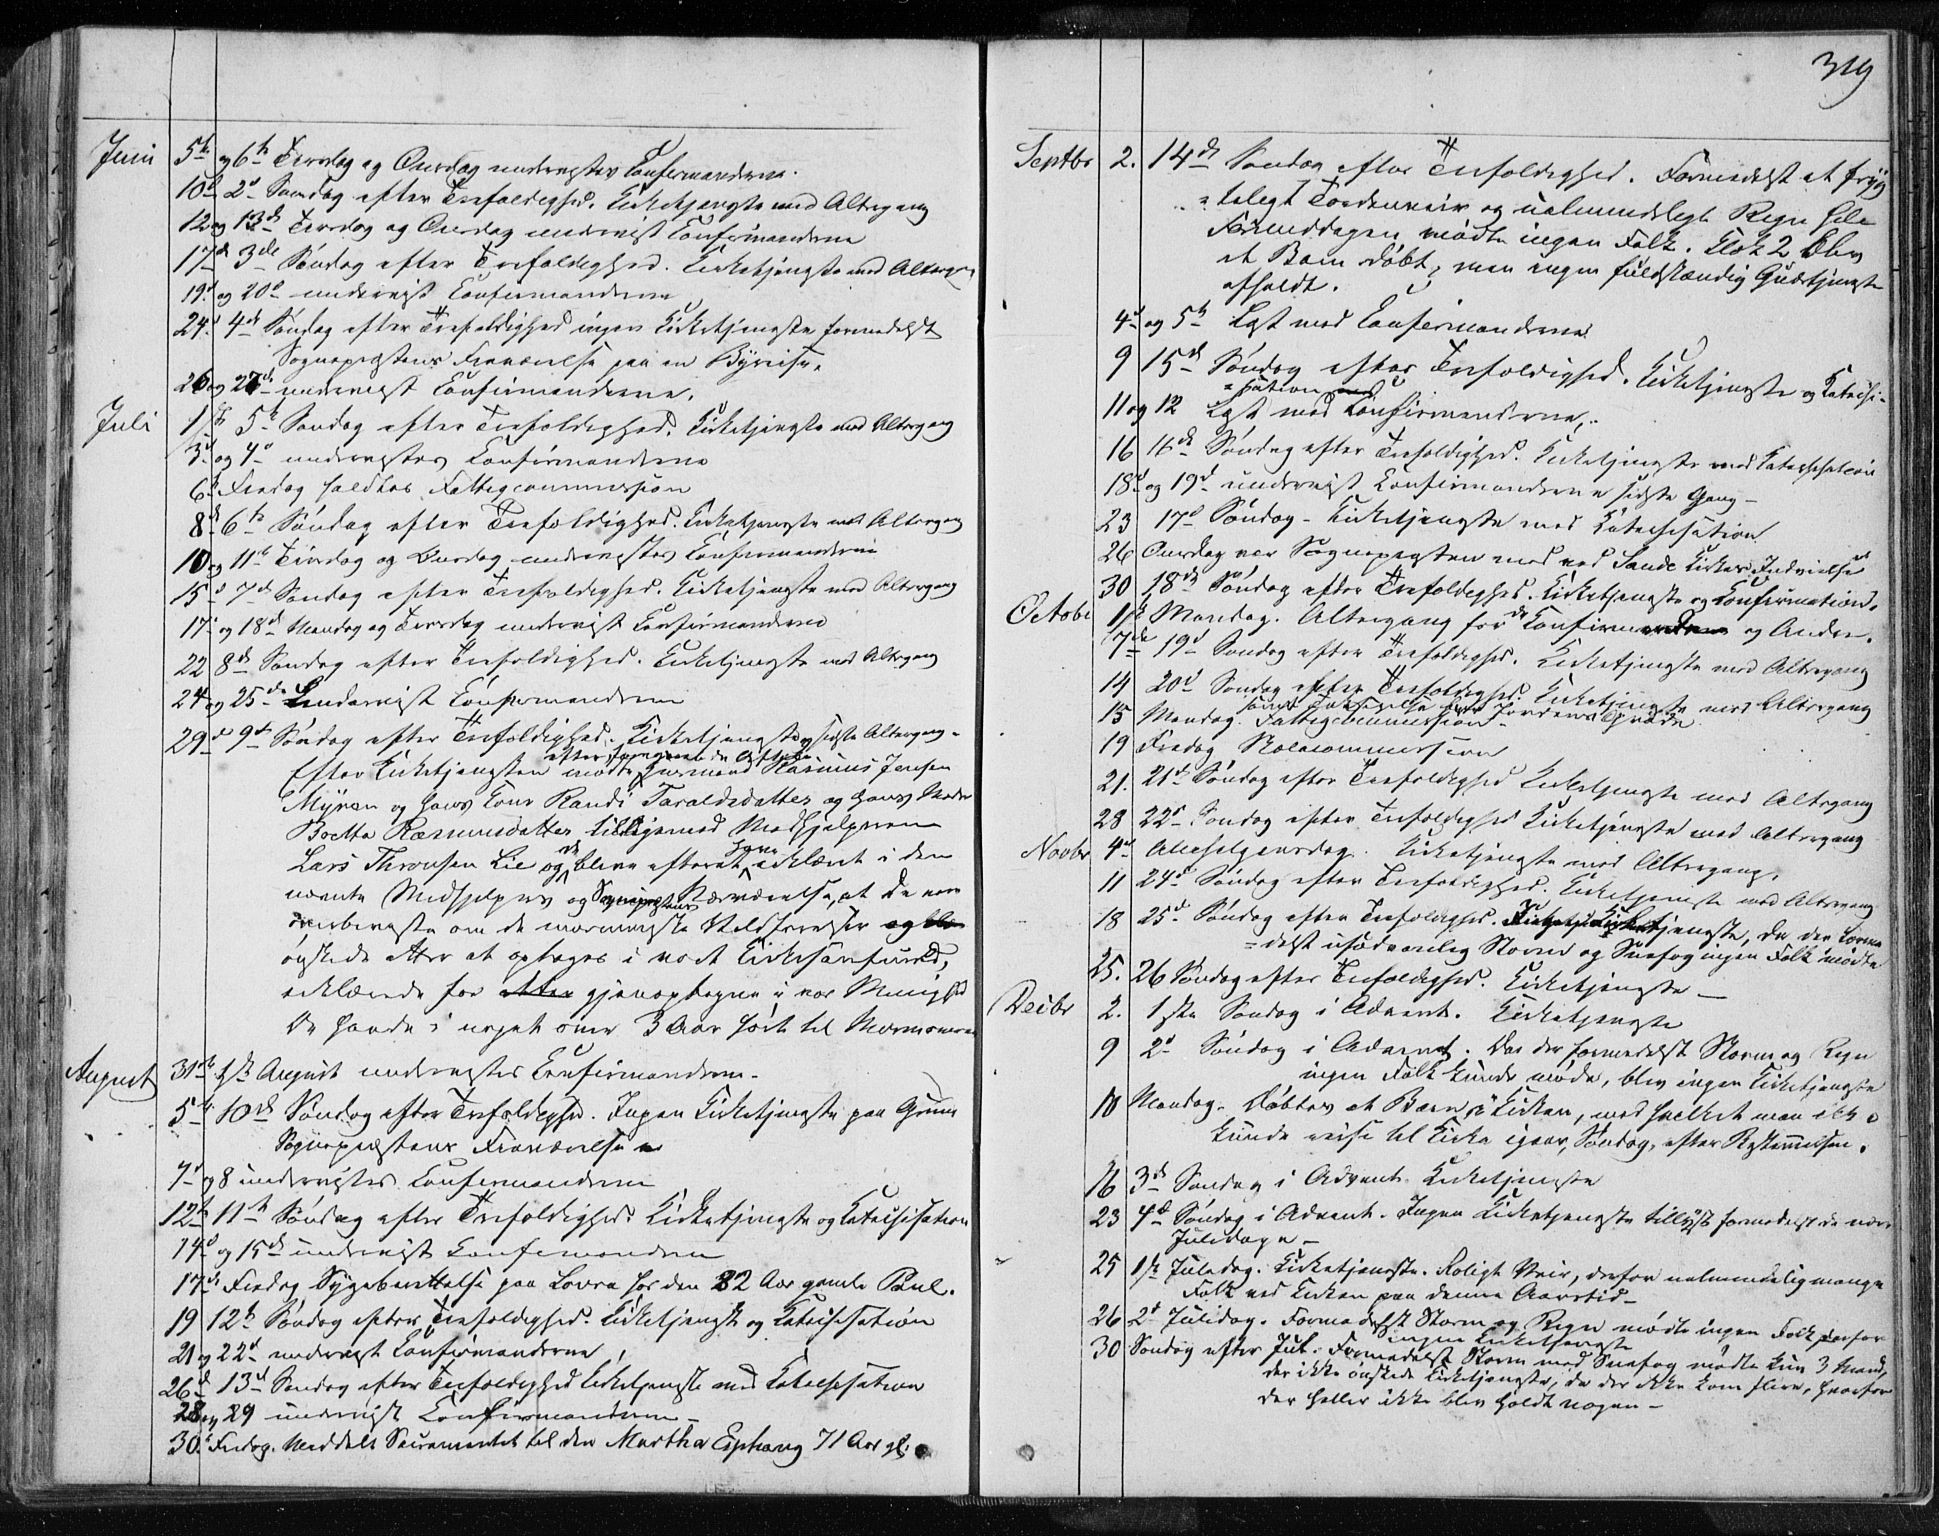 319
Juni 5te og 6te Tirsdag og Onsdag undervistes Confirmanderne.
10d 2d Søndag efter Trefoldighed. Kirketjeneste med Altergang
12 og 13de Tirsdag og Onsdag undervist Confirmanderne
17d 3die Søndag efter Trefoldighed. Kirketjeneste med Altergang
19d og 20d undervist Confirmanderne
24d 4de Søndag efter Trefoldighed ingen Kirketjeneste formedelst
Sognepræstens Fraværelse paa en Byreise.
26 og 27d undervist Confirmanderne.
Juli 1ste 5te Søndag efter Trefoldighed. Kirketjeneste med Altergang
3d og 4d undervistes Confirmanderne
6d Fredag holdtes Fattigcommission
8d 6te Søndag efter Trefoldighed. Kirketjeneste med Altergang
10 og 11te Tirsdag og Onsdag undervistes Confirmanderne
15d 7de Søndag efter Trefoldighed. Kirketjeneste med Altergang
17d og 18d Mandag og Tirsdag undervist Confirmanderne
22 8de Søndag efter Trefoldighed. Kirketjeneste med Altergang
24 og 25de undervist Confirmanderne
29d 9de Søndag efter Trefoldighed. Kirketjeneste og sidste Altergang.
Efter Kirketjenesten mødte efter foregaaende Aftale Huusmand Rasmus Jensen
Myren og hans Kone Randi Taraldsdatter og hans Moder
Boetta Rasmusdatter tilligemed Medhjelperen
Lars Thronsen Lie og de bleve efterat have erklæret i den
nævnte Medhjelpers og Sognepræstens Nærværelse, at de vare
overbeviste om de mormonske Vildfarelser og
ønskede atter at optages i vort Kirkesamfund,
erklærede for atter gjenoptagne i vor Menighed
De havde i noget over 3 Aar hørt til Mormonerne
August 31te 1ste August undervistes Confirmanderne.
5te 10de Søndag efter Trefoldighed. Ingen Kirketjeneste paa Grund
Sognepræstens Fraværelse
7d og 8 undervistes Confirmanderne
12te 11te Søndag efter Trefoldighed. Kirketjeneste og Katechisation
14d og 15de undervist Confirmanderne
17de Fredag Sygeberettelse paa Lovra hos den 82 Aar gamle Poul.
19 12te Søndag efter Trefoldighed. Kirketjeneste og Katechisation
21 og 22d undervist Confirmanderne
26d 13d Søndag efter Trefoldighed Kirketjeneste med Katechisation
28 og 29 undervist Confirmanderne
30 Fredag. Meddelt Sacramentet til den Martha Ersphang 71 Aar gl.
Septbr 2. 14de Søndag efter Trefoldighed. Formedelst et fryg
teligt Tordenveir og ualmindeligt Regn hele
Formiddagen mødte ingen Folk. Klok 2 blev
et Barn døbt, men ingen fuldstændig Gudstjeneste
afholdt.
4d og 5te Læst med Confirmanderne
9 15de Søndag efter Trefoldighed. Kirketjeneste og Katechi-
sation
11 og 12 Læst med Confirmanderne.
16 16de Søndag efter Trefoldighed. Kirketjeneste med Katechisation
18d og 19d undervist Confirmanderne sidste Gang
23 17d Søndag - Kirketjeneste med Katechisation
26 Onsdag var Sognepræsten med ved Sande Kirkes Indvielse
30 18de Søndag efter Trefoldighed. Kirketjeneste og Confirmation.
Octobr 1ste Mandag. Altergang for de Confirmerede og Andre.
7de 19d Søndag efter Trefoldighed. Kirketjeneste med Altergang
14 20d Søndag efter Trefoldighed. Kirketjeneste med Altergang
samt Taksigelse for Jordens Grøde
15 Mandag. Fattigcommission
19 Fredag Skolecommission
21. 21d Søndag efter Trefoldighed Kirketjeneste med Altergang
28 22d Søndag efter Trefoldighed Kirketjeneste med Altergang
Novbr 4d Allehelgensdag. Kirketjeneste med Altergang.
11 24d Søndag efter Trefoldighed. Kirketjeneste med Altergang
18 25d Søndag efter Trefoldighed. Kirketjeneste, da der forme
delst usædvanlig Storm og Snefog ingen Folk mødte
25. 26 Søndag efter Trefoldighed. Kirketjeneste
Decbr 2. 1ste Søndag i Advent. Kirketjeneste
9 2d Søndag i Advent. Da der formedelst Storm og Regn
ingen Folk kunde møde, blev ingen Kirketjeneste
10 Mandag. Døbtes et Barn i Kirken, med hvilket man ikke
kunde reise til Kirke igaar, Søndag, efter Bestemmelsen.
16 3de Søndag i Advent Kirketjeneste
23 4de Søndag i Advent. Ingen Kirketjeneste tillyst formedelst de nære
Juledage
25 1ste Juledag. Kirketjeneste. Roligt Veir, derfor ualmindelig mange
Folk ved Kirken paa denne Aarstid
26 2d Juledag. Formedelst Storm og Regn mødte ingen Folk derfor
ingen Kirketjeneste
30 Søndag efter Jul. Formedelst Storm med Snefog mødte kun 3 Mand,
der ikke ønskede Kirketjeneste, da der ikke kom flere, hvorfor
der heller ikke blev holdt nogen